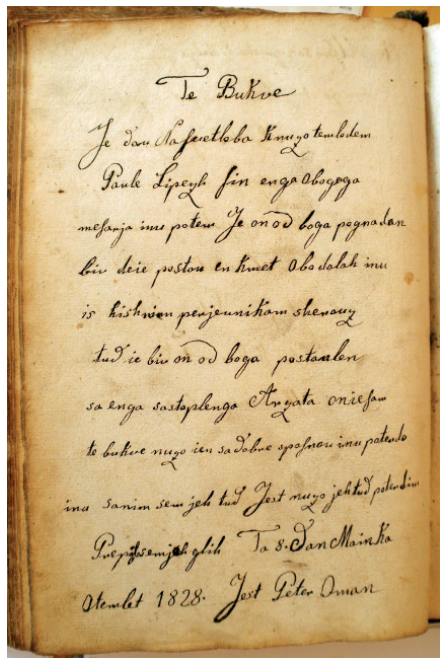 Te Bukve
Je dau Nasvetloba knugo temlodem
Paule Lipezh sin enga Obogega
mesarja inu potem Je on od boga pognadan
biv deie postou en kmet Obdalah inu
is hishnim perjeunikam
tud ie biv on od boga postaulen
sa enga sastoplenga Arzata on ie sam
te bukve nuzo ien sadobre sposnou inu
inu sanim sem jeh tud Jest nuzo jeh tud
Prepissemjeh glih Ta 8. Dan Mainka
Otemlet 1828. Jest Peter Oman